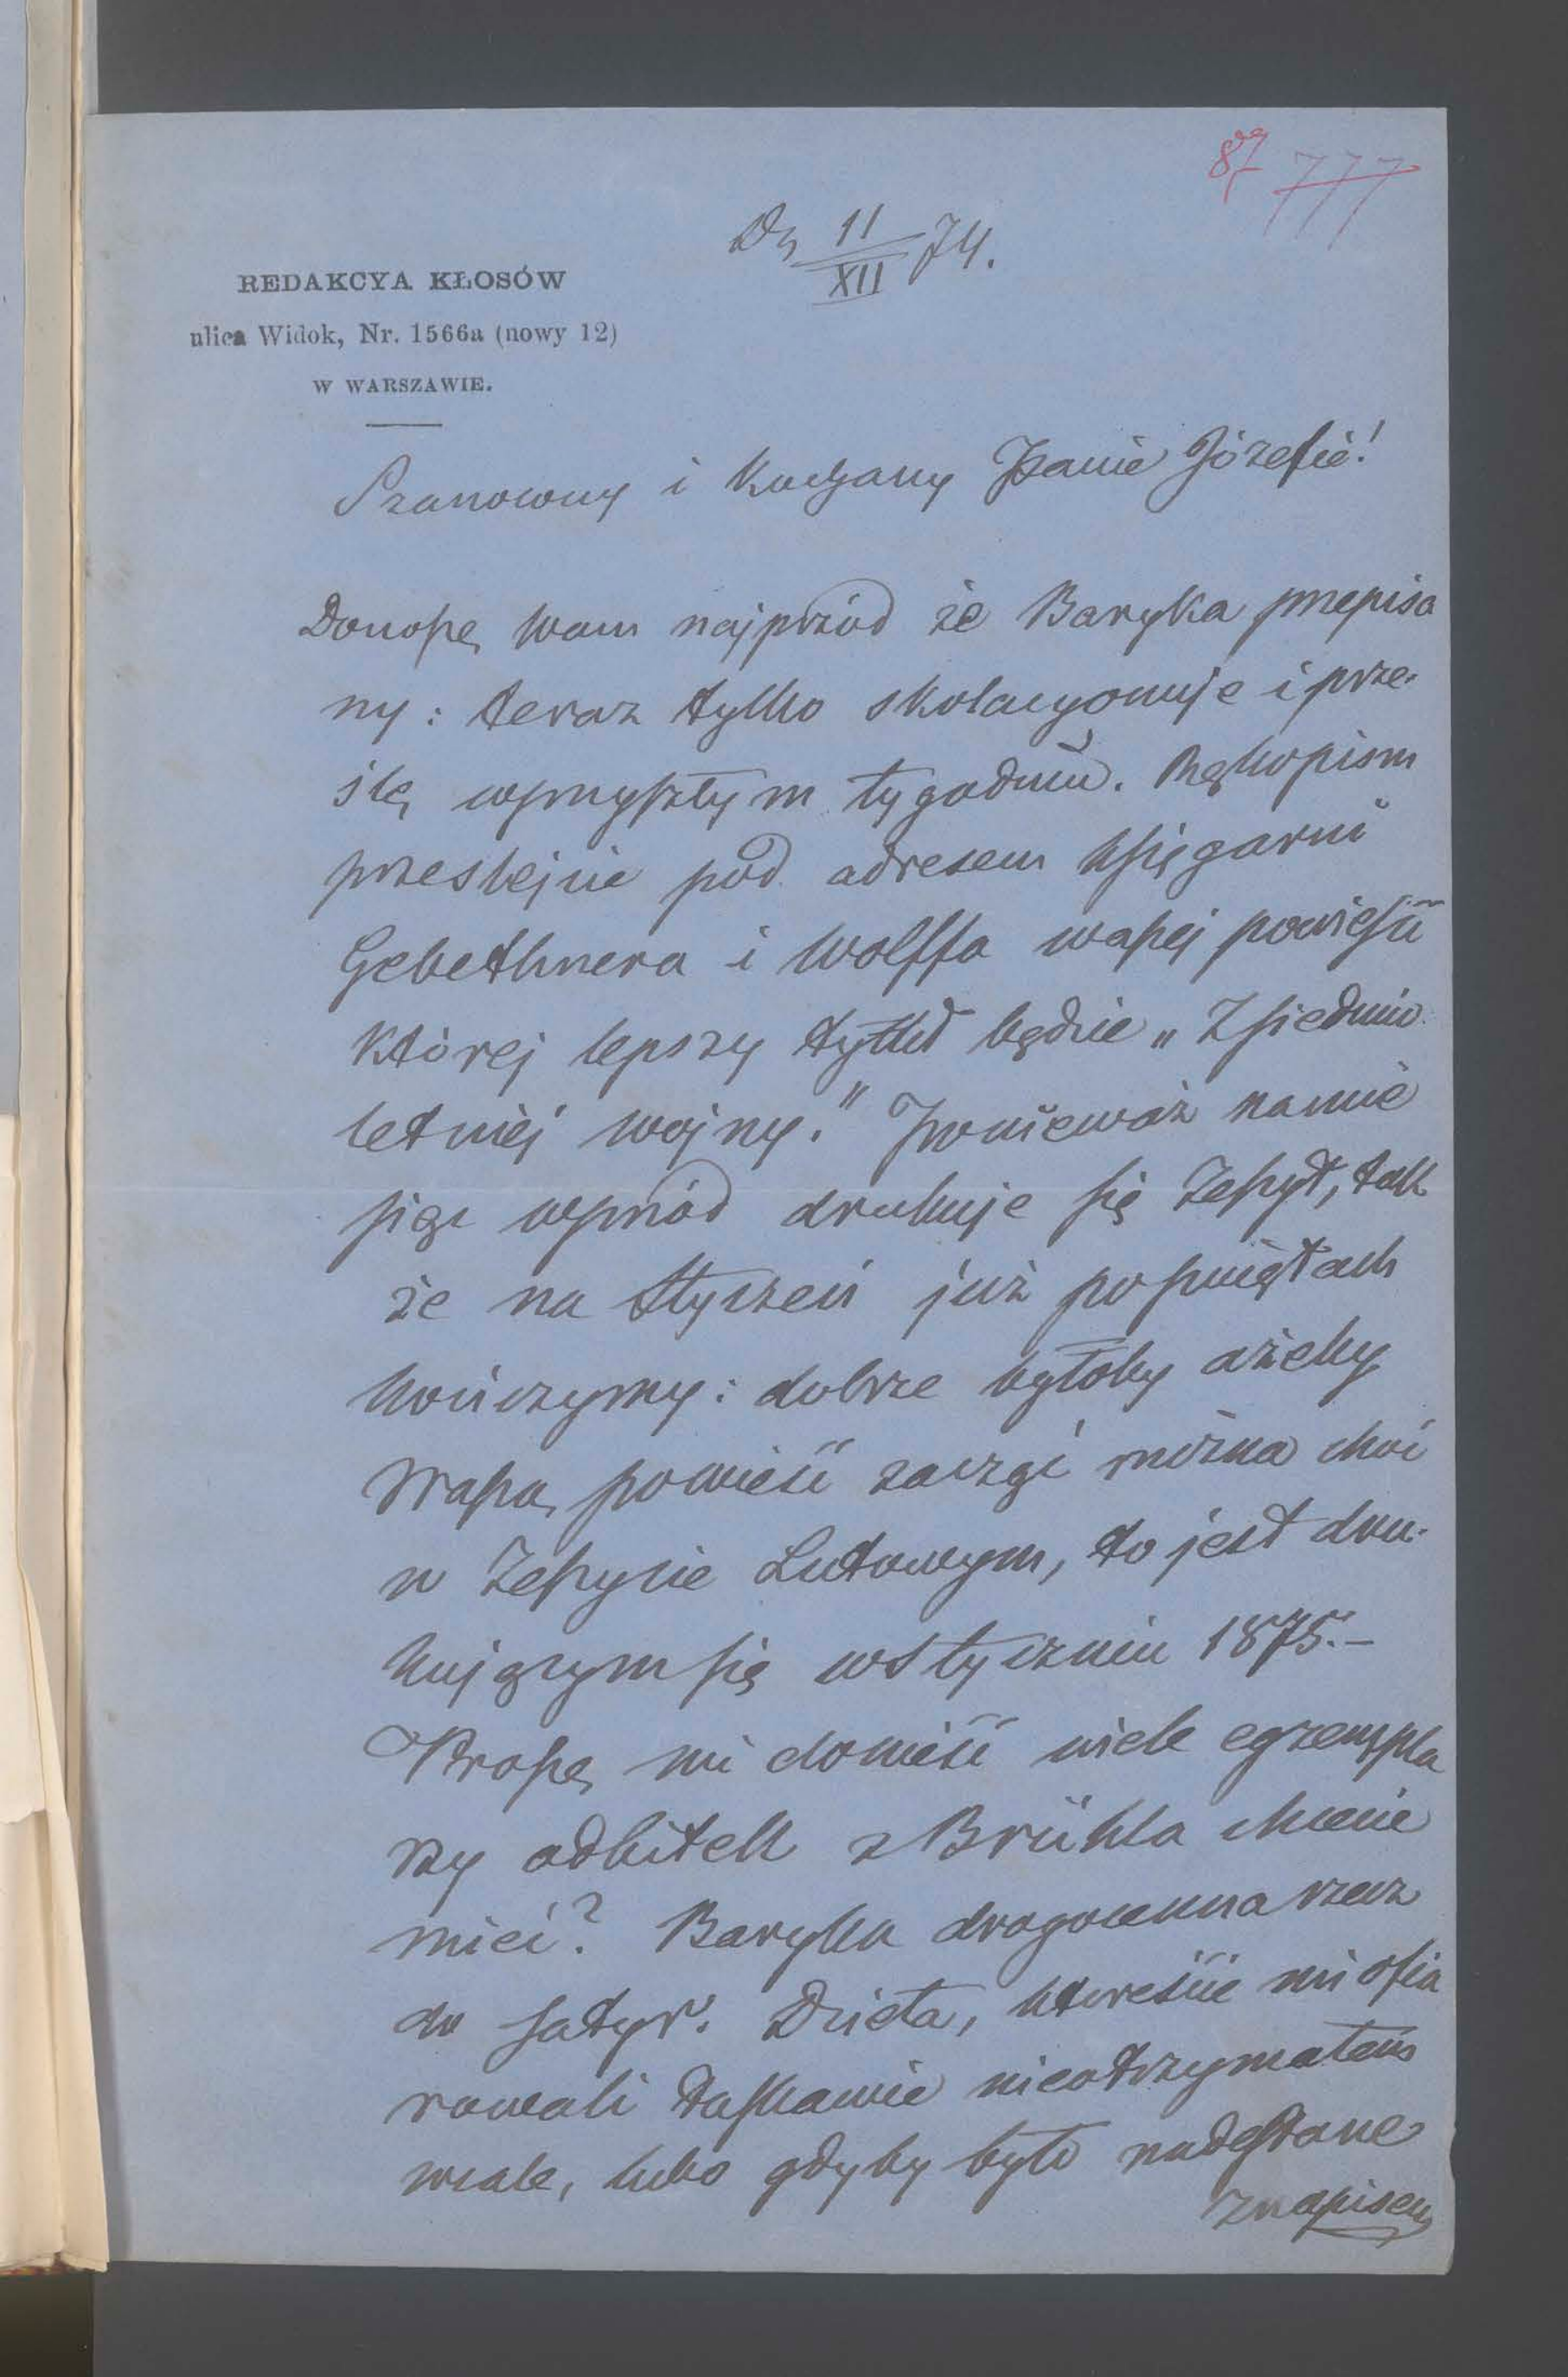 87 777
Dn 11/XII 74.
REDAKCYA KŁOSÓW
ulica Widok, Nr. 1566a (nowy 12)
W WARSZAWIE.
Szanowny i Kochany Panie Józefie!
Donoszę Wam najprzód że Baryka przepisa
ny: teraz tylko skolacyonuje i prze-
ślę wprzyszłym tygodniu. Rękopism
prześlejcie pod adresem księgarni
Gebethnera i Wolffa waszej powieści
której lepszy tytuł będzie „Z siedmio
letniej wojny." Ponieważ na mie
siąc wprzód drukuje się Zeszyt, tak
że na Styczeń już po świętach
kończymy: dobrze byłoby ażeby
Waszą powieść zacząć można choć
w Zeszycie Lutowym, to jest dru-
kującym się w Styczniu 1875.—
Proszę mi donieść wiele egzempla
rzy odbitek z Brühla chcecie
mieć? Baryka drogocenna rzecz
do satyr. Dzieła, któreście mi ofia
rowali łaskawie nieotrzymałem
wcale, lubo gdyby było nadesłane
z napisem